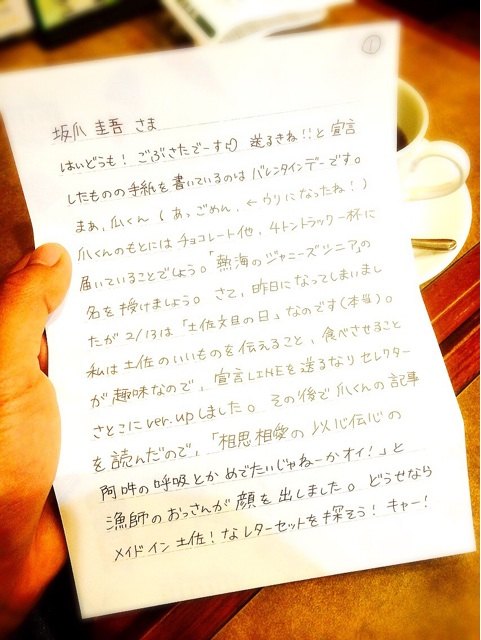 ①
坂爪 圭吾 さま
はいどうも! ごぶさたでーす 送るきね!!と 宣言
したものの手紙を書いているのは バレンタインデーです。
まぁ、瓜くん ( あっごめん、← ウリになったね! )
爪くんのもとには チョコレート他、4トントラック一杯に
届いていることでしょう。「熱海のジャニーズシニア」の
名を授けましょう。 さて、昨日になってしまいまし
たが 2/13は 「土佐文旦の日」なのです(本当)。
私は土佐のいいものを伝えること、食べさせること
が趣味なので、宣言LINEを送るなり セレクター
さとこに ver.upしました。 その後で爪くんの記事
を読んだので、「相思相愛の 以心伝心の
阿吽の呼吸とか めでたいじゃねーかオイ!」と
漁師のおっさんが顔を出しました。 どうせなら
メイドイン土佐!なレターセットを探そう! キャー!